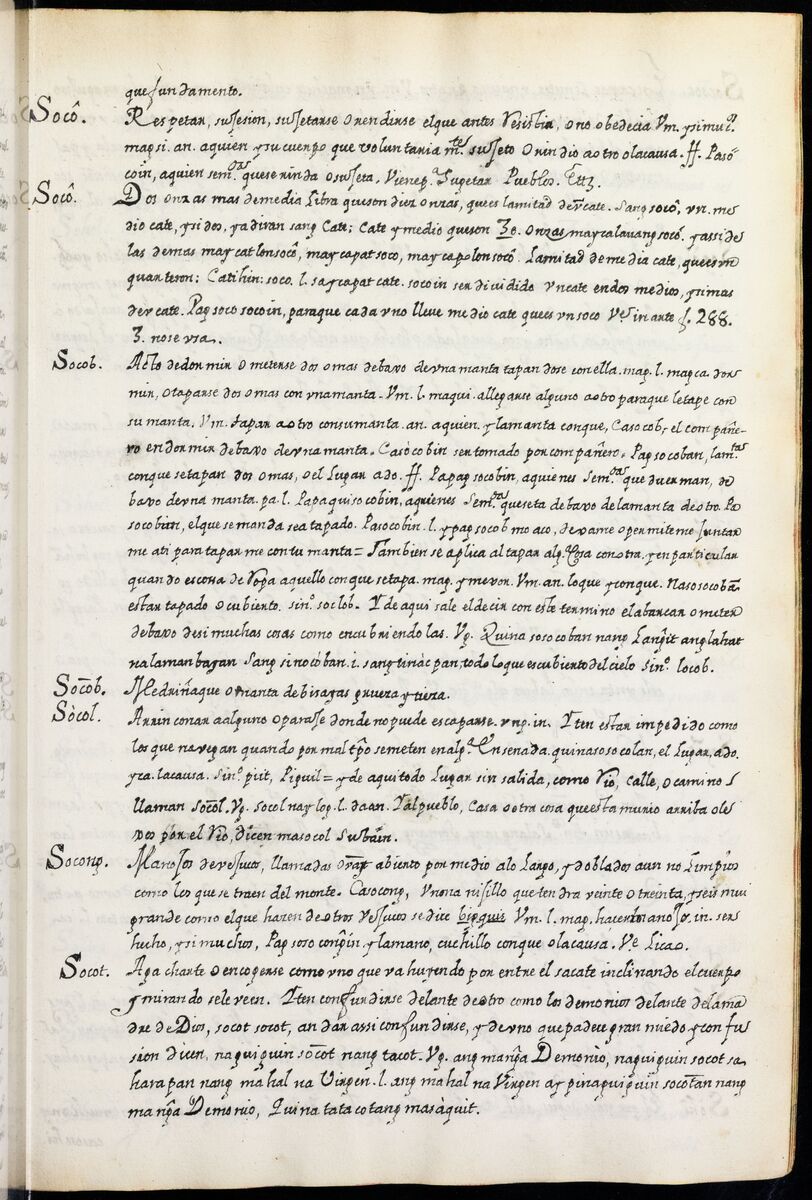 quefundamento.
Socô. Respetar, sujesion, sujetarse o rendirse elque antes Resistia, ono obedecia Vm. ysimulʳ.
mapsi. an. aquien ysucuerpo que voluntaria mᵗᵉ. sujeto o rindio aotro olacausa. ff. Pasó
coin, aquien semᵒᵃˢ quese rinda osujeta. Vienep. Supetar Pueblos. Ettz.
Socô. Dos onzas mas demedia Libra queson diez onzas, quees lamitad devn cate. Sang socô, vn. me
dio cate, ysidos, yadiran sang Cate; Cate ymedio queson 30. onzas maycalauang socô. yassi de
las demas maycatlonsocô, maycapat soco, maycapolonsocô. Lamitad demedia cate, quees un
quarteron: Catihin: soco. l. saycapat cate. socoin ser dividido vncate endos medios, ysimas
devcate. Pag soco socoin, paraque cada vno lleve medio cate quees vn soco Vᵉ. in arte f. 288.
3. nose vsa.
Socob. Acto dedormir o meterse dos omas debaxo devna manta tapandose conella. mag. l. magca. dor
mir, otaparse dos omas con vnamanta. Vm. l. maqui. allegarse alguno aotro paraque letape con
su manta. Vm. tapar aotro consumanta. an. aquien. ylamanta conque, Casocob, el compañe-
ro endormir debaxo devna manta. Casòcobin ser tomado por compañero. Pag socoban, lamᵗᵃˢ
conque setapan dos omas, o el Lugar ado. ff. Papag socobin, aquienes semᵒᵃˢ que duerman, de
baxo devna manta. pa. l. Papaquisocobin, aquienes semᵒᵃˢ queseta debaxo delamanta deotro. Pa
socobian, elque semanda sea tapado. Pasocobin. l. ypag socob mo aco, dexame opermiteme Juntar
me ati para tapar me contu manta = Tambien se aplica al tapar alg. Cosa conotra. yen particular
quando escosa de Ropa aquello conque setapa. mag. ymeron. Vm. an. loque yconque. Nasosocobã
estar tapado o cubierto. sinᵒ. soclob. Yde aqui sale eldecir con este termino el abarcar o meter
debaxo desi muchas cosas como encubriendolas. Vg. Quina sosocoban nang Langit ang lahat
na laman bayan Sang sinocóban. i. sang tinàcpan, todo loque es cubierto del cielo Sinᵒ. locob.
Socõb. Medriñaque o manta debisayas grueza ytieza.
Sòcol. Arrinconar aalguno oparasse donde no puede escaparse. vnp. in. Yten estar impedido como
los que navegan quando por mal tpõ semeten enalgᵃ Ensenada. quinasosocolan, el Lugar, ado.
yca. lacausa. Sinᵒ. piit, Piguil = yde aqui todo Lugar sin salida, como Rio, Calle, o camino l
llaman Socõl. Vg. socol nay log. l. daan. Yalpueblo, Casa o otra cosa que esta muiio arriba ole
xos por el Rio, dicen masocol Subáin.
Socong. Manojos devejucos, llamadas Oray abierto por medio alo Largo, ydoblados aun no Limpios
como los que se traen del monte. Casocong, vnona nisillo que tendra veinte otreinta, yseis mui
grande como elque hazen deotros vejucos se dice bigquis Vm. l. mag. hacer manojos. in. sers
hecho, ysimuchos, Pag soso congin ylamano, cuchillo conque olacausa. Vᵉ Licao.
Socot. Agacharte oencogerse como vno que va huyendo por entre el sacate inclinando el cuerpo
ymirando seleveen. Yten confundirse delante deotro como los demonios delante delama
dre de Dios, socot socot, andár assi confundirse, ydevno quepadece gran miedo yconfu
sion dicen, naguiguin socõt nang tacot. Vg. ang manga Demonio, naguiguin socot sa
harapan nang mahal na Virgen. l. ang mahal na Virgen ay pinaguiguin socotan nang
manga Demonio, Quina tatacotang masàquit.